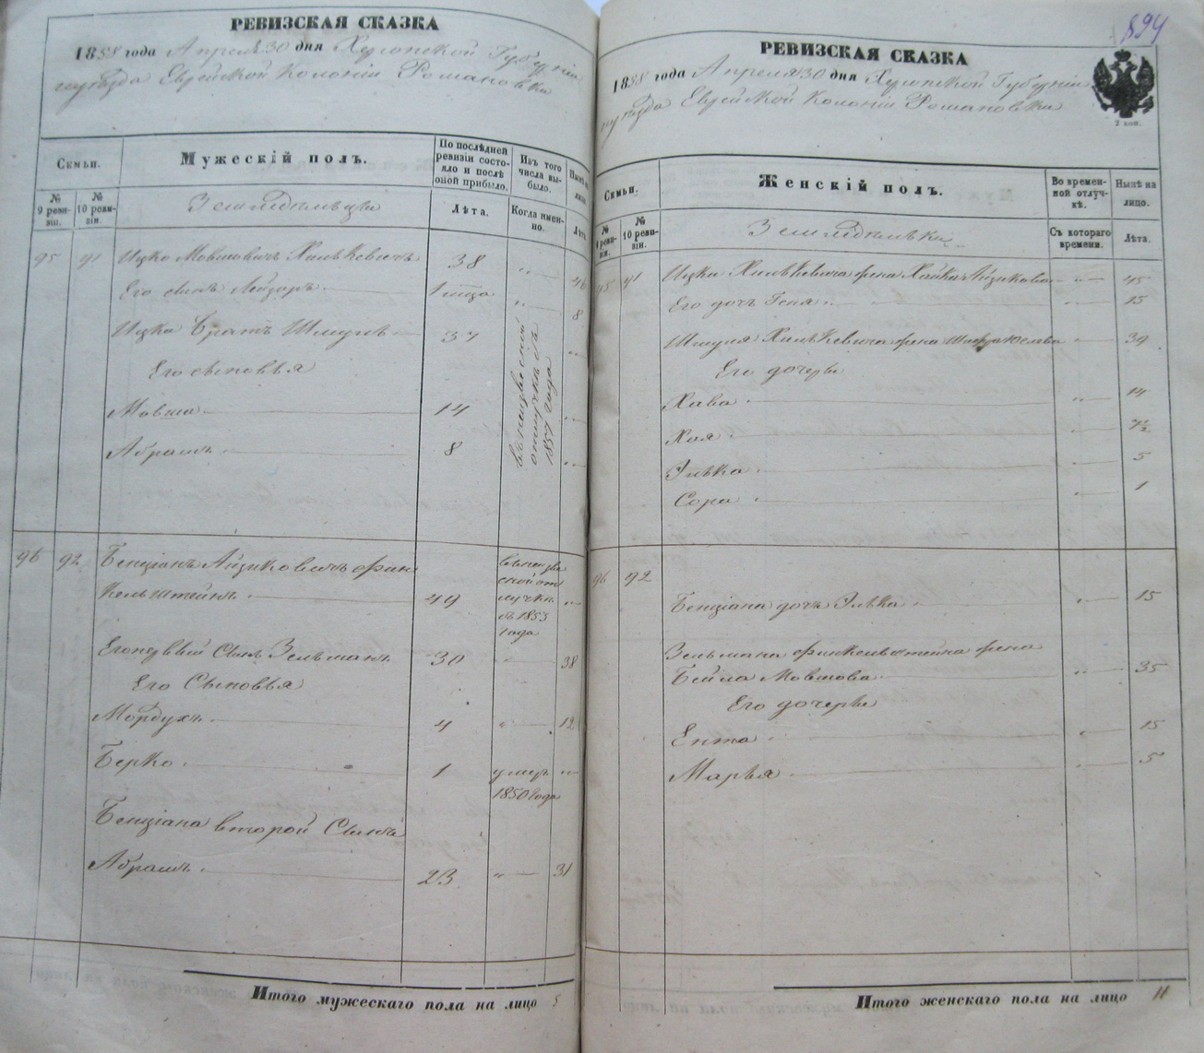 РЕВИЗСКАЯ СКАЗКА
1858 года Апреля 30 дня Херсонской Губерніи
уѣзда Еврейской Колоніи Романовки
Семьи.
Мужескій полъ.
По послѣдней ревизіи состояло и послѣ оной прибыло.
Изъ того числа выбыло.
Нынѣ на лицо.
№ 9 ревизіи.
№ 10 ревизіи.
Земледѣльцы
Лѣта.
Когда именно.
Лѣта.
95 91 Ицко Мовшовичъ Хилькевичъ 38 „ 46
Его сынъ Лейзаръ 1 „ 8
Ицка Братъ Шмуль 37 „
Его сыновья
Мовша 14 „
Абрамъ 8 „
отлучкѣ съ
1857 года
96 92 Бенціанъ Айзиковичъ Фин
кельштейнъ 49 „
съ 1853
года
Его первый Сынъ Зельманъ 30 „ 38
Его Сыновья
Мордухъ 4 „ 12
Берко 1 умеръ „
1850 года
Бенціана второй Сынъ
Абрамъ 23 „ 31
Итого мужескаго пола на лицо 5
894
РЕВИЗСКАЯ СКАЗКА
1858 года Апреля 30 дня Херсонской Губерніи
уѣзда Еврейской Колоніи Романовки
2 коп.
Семьи.
Женскій полъ.
Во временной отлучкѣ.
Нынѣ на лицо.
№ 9 ревизіи.
№ 10 ревизіи.
Земледѣлки
Съ котораго времени.
Лѣта.
95 91 Ицка Хилькевича жена Хайка Айзикова „ 45
Его дочь Геня „ 15
Шмуля Хилькевича жена Шифра Юслева 39
Его дочери
Хава „ 14
Хая „ 7½
Элька „ 5
Сора „ 1
96 92
Бенціана дочь Элька „ 15
Зельмана Финкельштейна жена
Бейла Мовшова „ 35
Его дочери
Ента „ 15
Марья „ 5
Итого женскаго пола на лицо 11